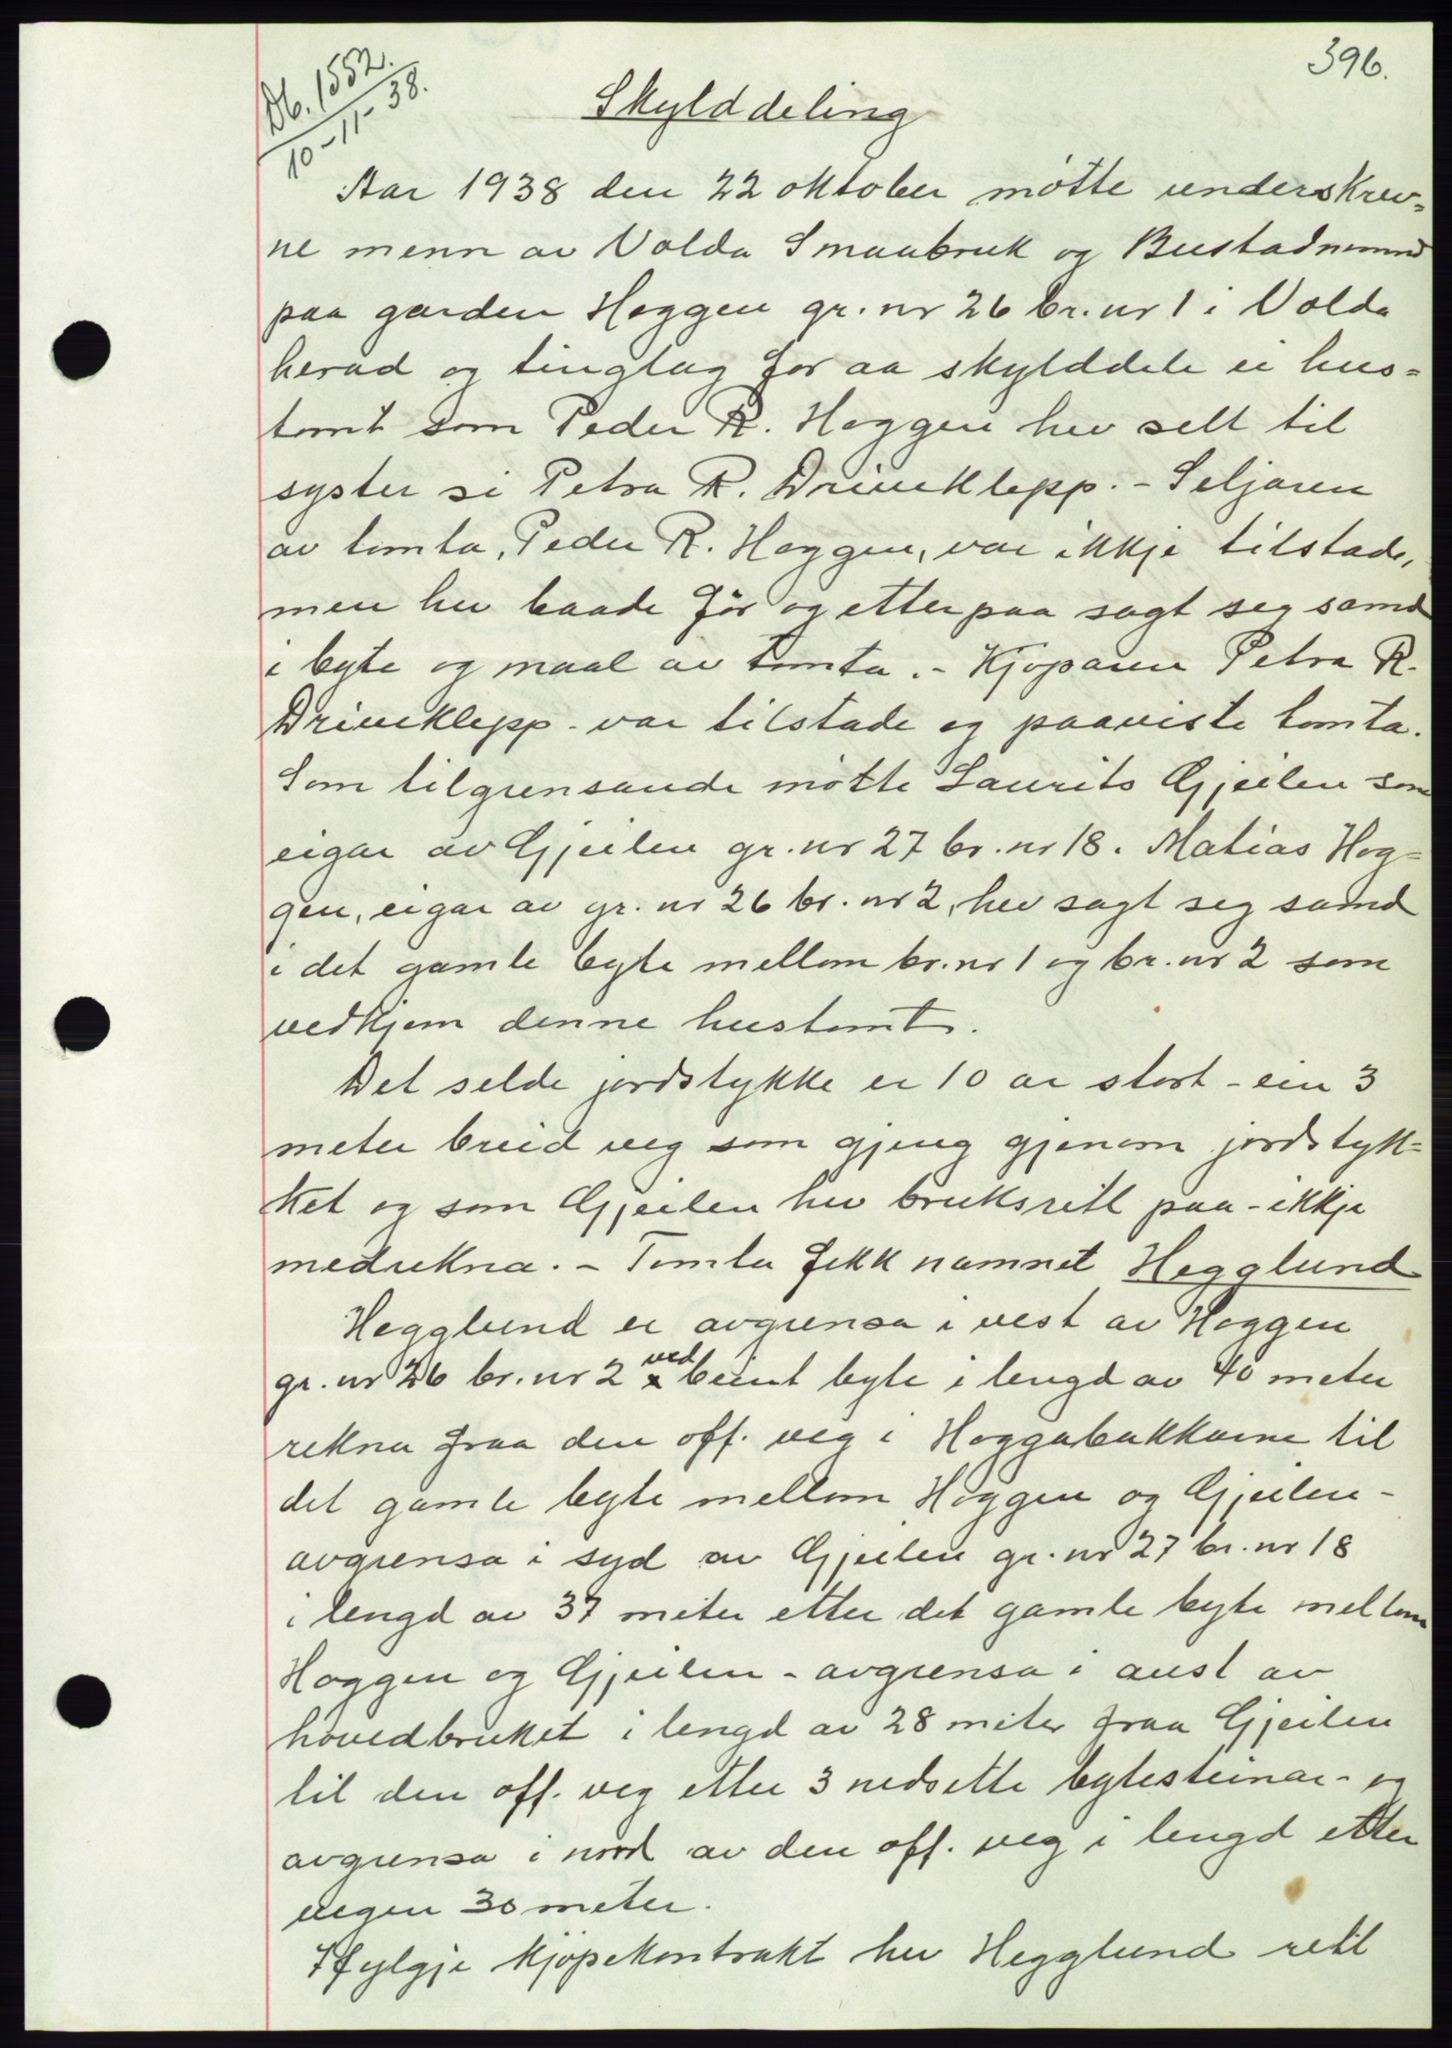 396.
Db. 1552.
10-11-38.
Skylddeling
Aar 1938 den 22 oktober møtte underskrev-
ne menn av Volda Smaabruk og Bustadnemnd
paa garden Heggen gr. nr 26 br. nr 1 i Volda
herad og tinglag for aa skylddele ei hus-
tomt som Peder R. Heggen hev selt til
syster si Petra R. Driveklepp. - Seljaren
av tomta, Peder R. Heggen, var ikkje tilstade,
men hev baade før og etterpaa sagt seg samd
i byte og maal av tomta. - Kjøparen Petra R.
Driveklepp - var tilstade og paaviste tomta.
Som tilgrensande møtte Laurits Gjeilen som
eigar av Gjeilen gr. nr 27 br. nr 18. Matias Heg-
gen, eigar av gr. nr 26 br. nr 2, hev sagt seg samd
i det gamle byte mellom br. nr 1 og br. nr 2 som
vedkjem denne hustomt.
Det selde jordstykke er 10 ar stort - ein 3
meter breid veg som gjeng gjenom jordstyk-
ket og som Gjeilen hev bruksrett paa - ikkje
medrekna. - Tomta fekk namnet Hegglund
Hegglund er avgrensa i vest av Heggen
gr. nr 26 br. nr 2 x ved beint byte i lengd av 40 meter
rekna fraa den off. veg i Heggabakkarne til
det gamle byte mellom Heggen og Gjeilen -
avgrensa i syd av Gjeilen gr. nr 27 br. nr 18
i lengd av 37 meter etter det gamle byte mellom
Heggen og Gjeilen - avgrensa i aust av
hovedbruket i lengd av 28 meter fraa Gjeilen
til den off. veg etter 3 nedsette bytesteinar - og
avgrensa i nord av den off. veg i lengd etter
vegen 30 meter.
Ifylgje kjøpekontrakt hev Hegglund rett